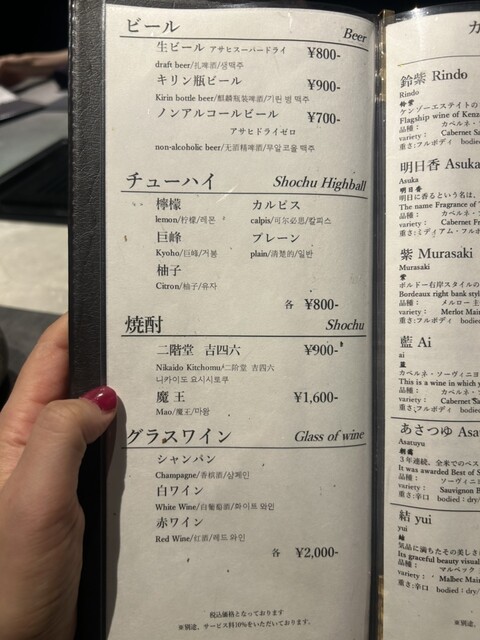 ビール Beer
生ビール アサヒスーパードライ ¥800-
draft beer/扎啤酒/생맥주
キリン瓶ビール ¥900-
Kirin bottle beer/麒麟瓶装啤酒/기린 병 맥주
ノンアルコールビール ¥700-
アサヒドライゼロ
non-alcoholic beer/无酒精啤酒/무알코올 맥주
チューハイ Shochu Highball
檸檬 カルピス
lemon/柠檬/레몬 calpis/可尔必思/칼피스
巨峰 プレーン
Kyoho/巨峰/거봉 plain/清楚的/일반
柚子
Citron/柚子/유자
各 ¥800-
焼酎 Shochu
二階堂 吉四六 ¥900-
Nikaido Kitchomu/二階堂 吉四六
니카이도 요시시로쿠
魔王 ¥1,600-
Mao/魔王/마왕
グラスワイン Glass of wine
シャンパン
Champagne/香槟酒/샴페인
白ワイン
White Wine/白葡萄酒/화이트 와인
赤ワイン
Red Wine/红酒/레드 와인
各 ¥2,000-
税込価格となっております
※別途、サービス料10%をいただいております。
鈴紫 Rindo
Rindo
鈴紫
ケンゾーエステイトの
Flagship wine of Kenz
品種： カベルネ・
variety： Cabernet Sa
重さ:フルボディ bodied
明日香 Asuka
Asuka
明日香
明日に香るという名は、
The name Fragrance of
品種： カベルネ・
variety： Cabernet Fr
重さ:ミディアム・フル
紫 Murasaki
Murasaki
紫
ボルドー右岸スタイルの
Bordeaux right bank style
品種： メルロー 主
variety： Merlot Mai
重さ:フルボディ bodied
藍 Ai
ai
藍
カベルネ・ソーヴィニヨ
This is a wine in which y
品種： カベルネ・
variety： Cabernet Sa
重さ:フルボディ bodied
あさつゆ Asa
Asatuyu
朝露
3年連続、全米でのベス
It was awarded Best of S
品種： ソーヴィニ
variety： Sauvignon B
重さ:辛口 bodied：dry/
結 yui
yui
結
気品に満ちたその美しさ
Its graceful beauty visual
品種： マルベック
variety： Malbec Mai
重さ:辛口 bodied：dry/
※別途、